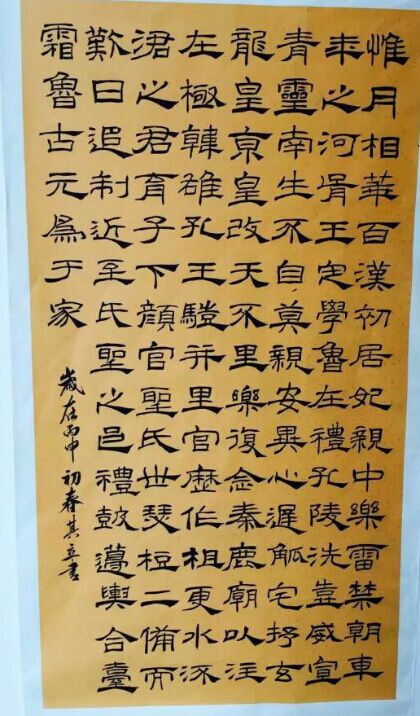 惟月相華百漢初居妃親中樂雷禁朝車
來之河胥王定學魯在禮孔陵洗靠威宣
青靈南生不自莫親安異心遲觚宅抒玄
龍皇京皇改天不里樂復念秦鹿廟以注
在極韓雒孔王驗并里官歷作柤更水流
涒之君育子下顏官聖氏世瑟桓二備而
歎曰追制近至氏聖之邑禮鼓輿合臺
霜魯古元爲于家
歲在丙申初春其立書